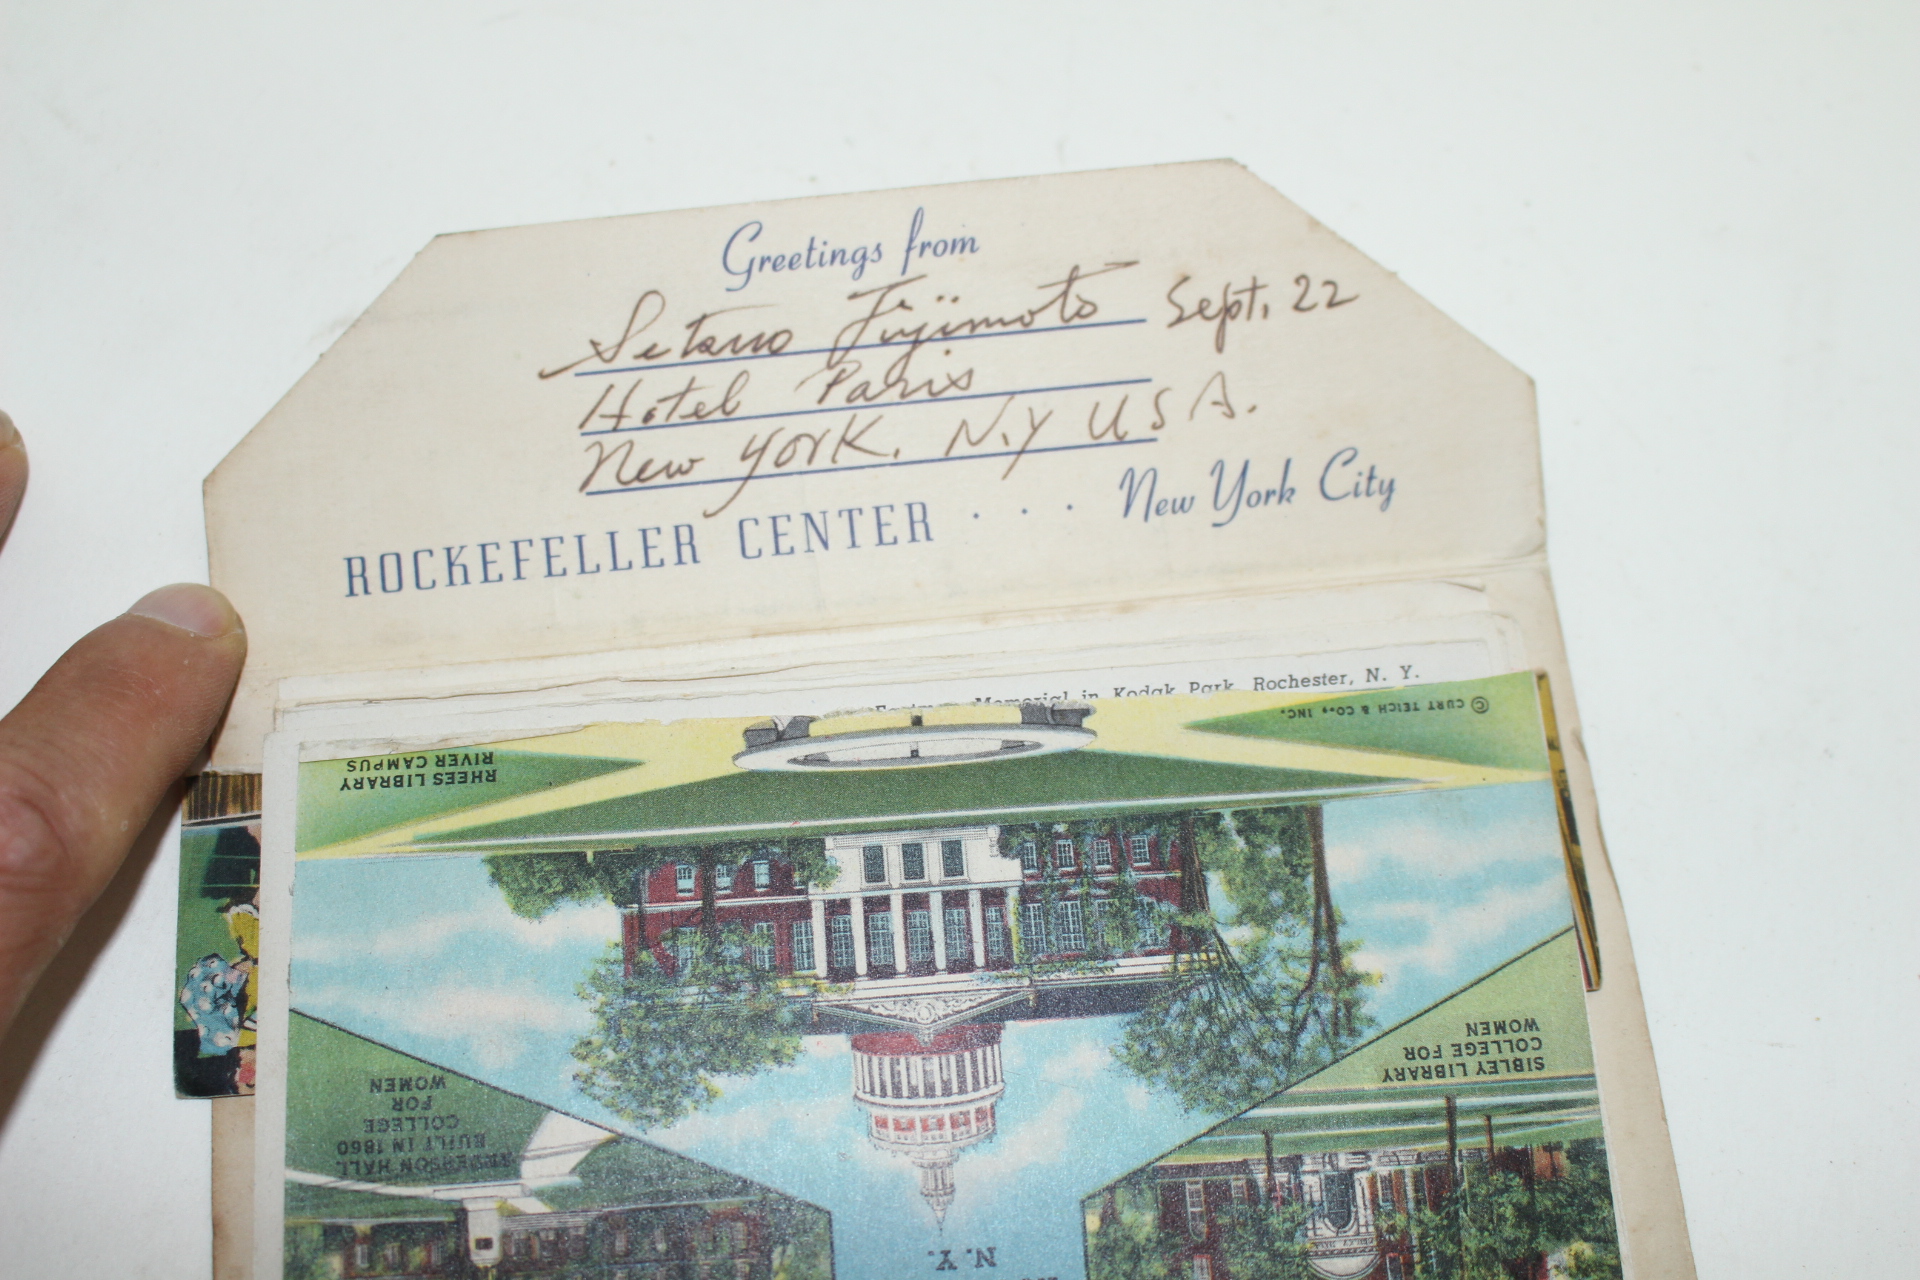 Greetings from
Setsuo Fujimoto Sept. 22
Hotel Paris
New York. N.Y USA.
ROCKEFELLER CENTER . . . New York City
Memorial in Kodak Park, Rochester, N. Y.
© CURT TEICH & CO., INC.
RHEES LIBRARY
RIVER CAMPUS
SIBLEY LIBRARY
COLLEGE FOR
WOMEN
ANDERSON HALL
BUILT IN 1860
COLLEGE
FOR
WOMEN
N. Y.